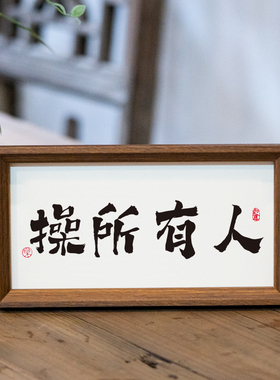 人有所操